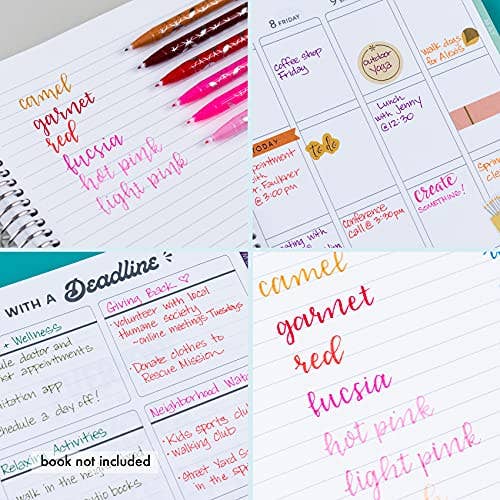 camel
garnet
red
fucsia
hot pink
light pink
8 FRIDAY
9
coffee shop
Friday
outdoor
Yoga
walk dogs
for Alexis
Lunch
with Jenny
@12:30
TODAY
to do
appointment
with
Dr. Faulkner
@ 3:00 pm
conference
call @ 3:30pm
create
SOMETHING!
cle
with
WITH A Deadline
+ Wellness
Giving Back ♡
• Volunteer with local
Humane society
~online meetings Tuesdays
• Donate clothes to
Rescue Mission
doctor and
appointments
app
schedule a day off!
Relaxing Activities
walk in the
audio books
Neighborhood Wat
• Kids sports clu
• Walking club
• Street Yard S
in the sp
book not included
camel
garnet
red
fucsia
hot pink
light pink